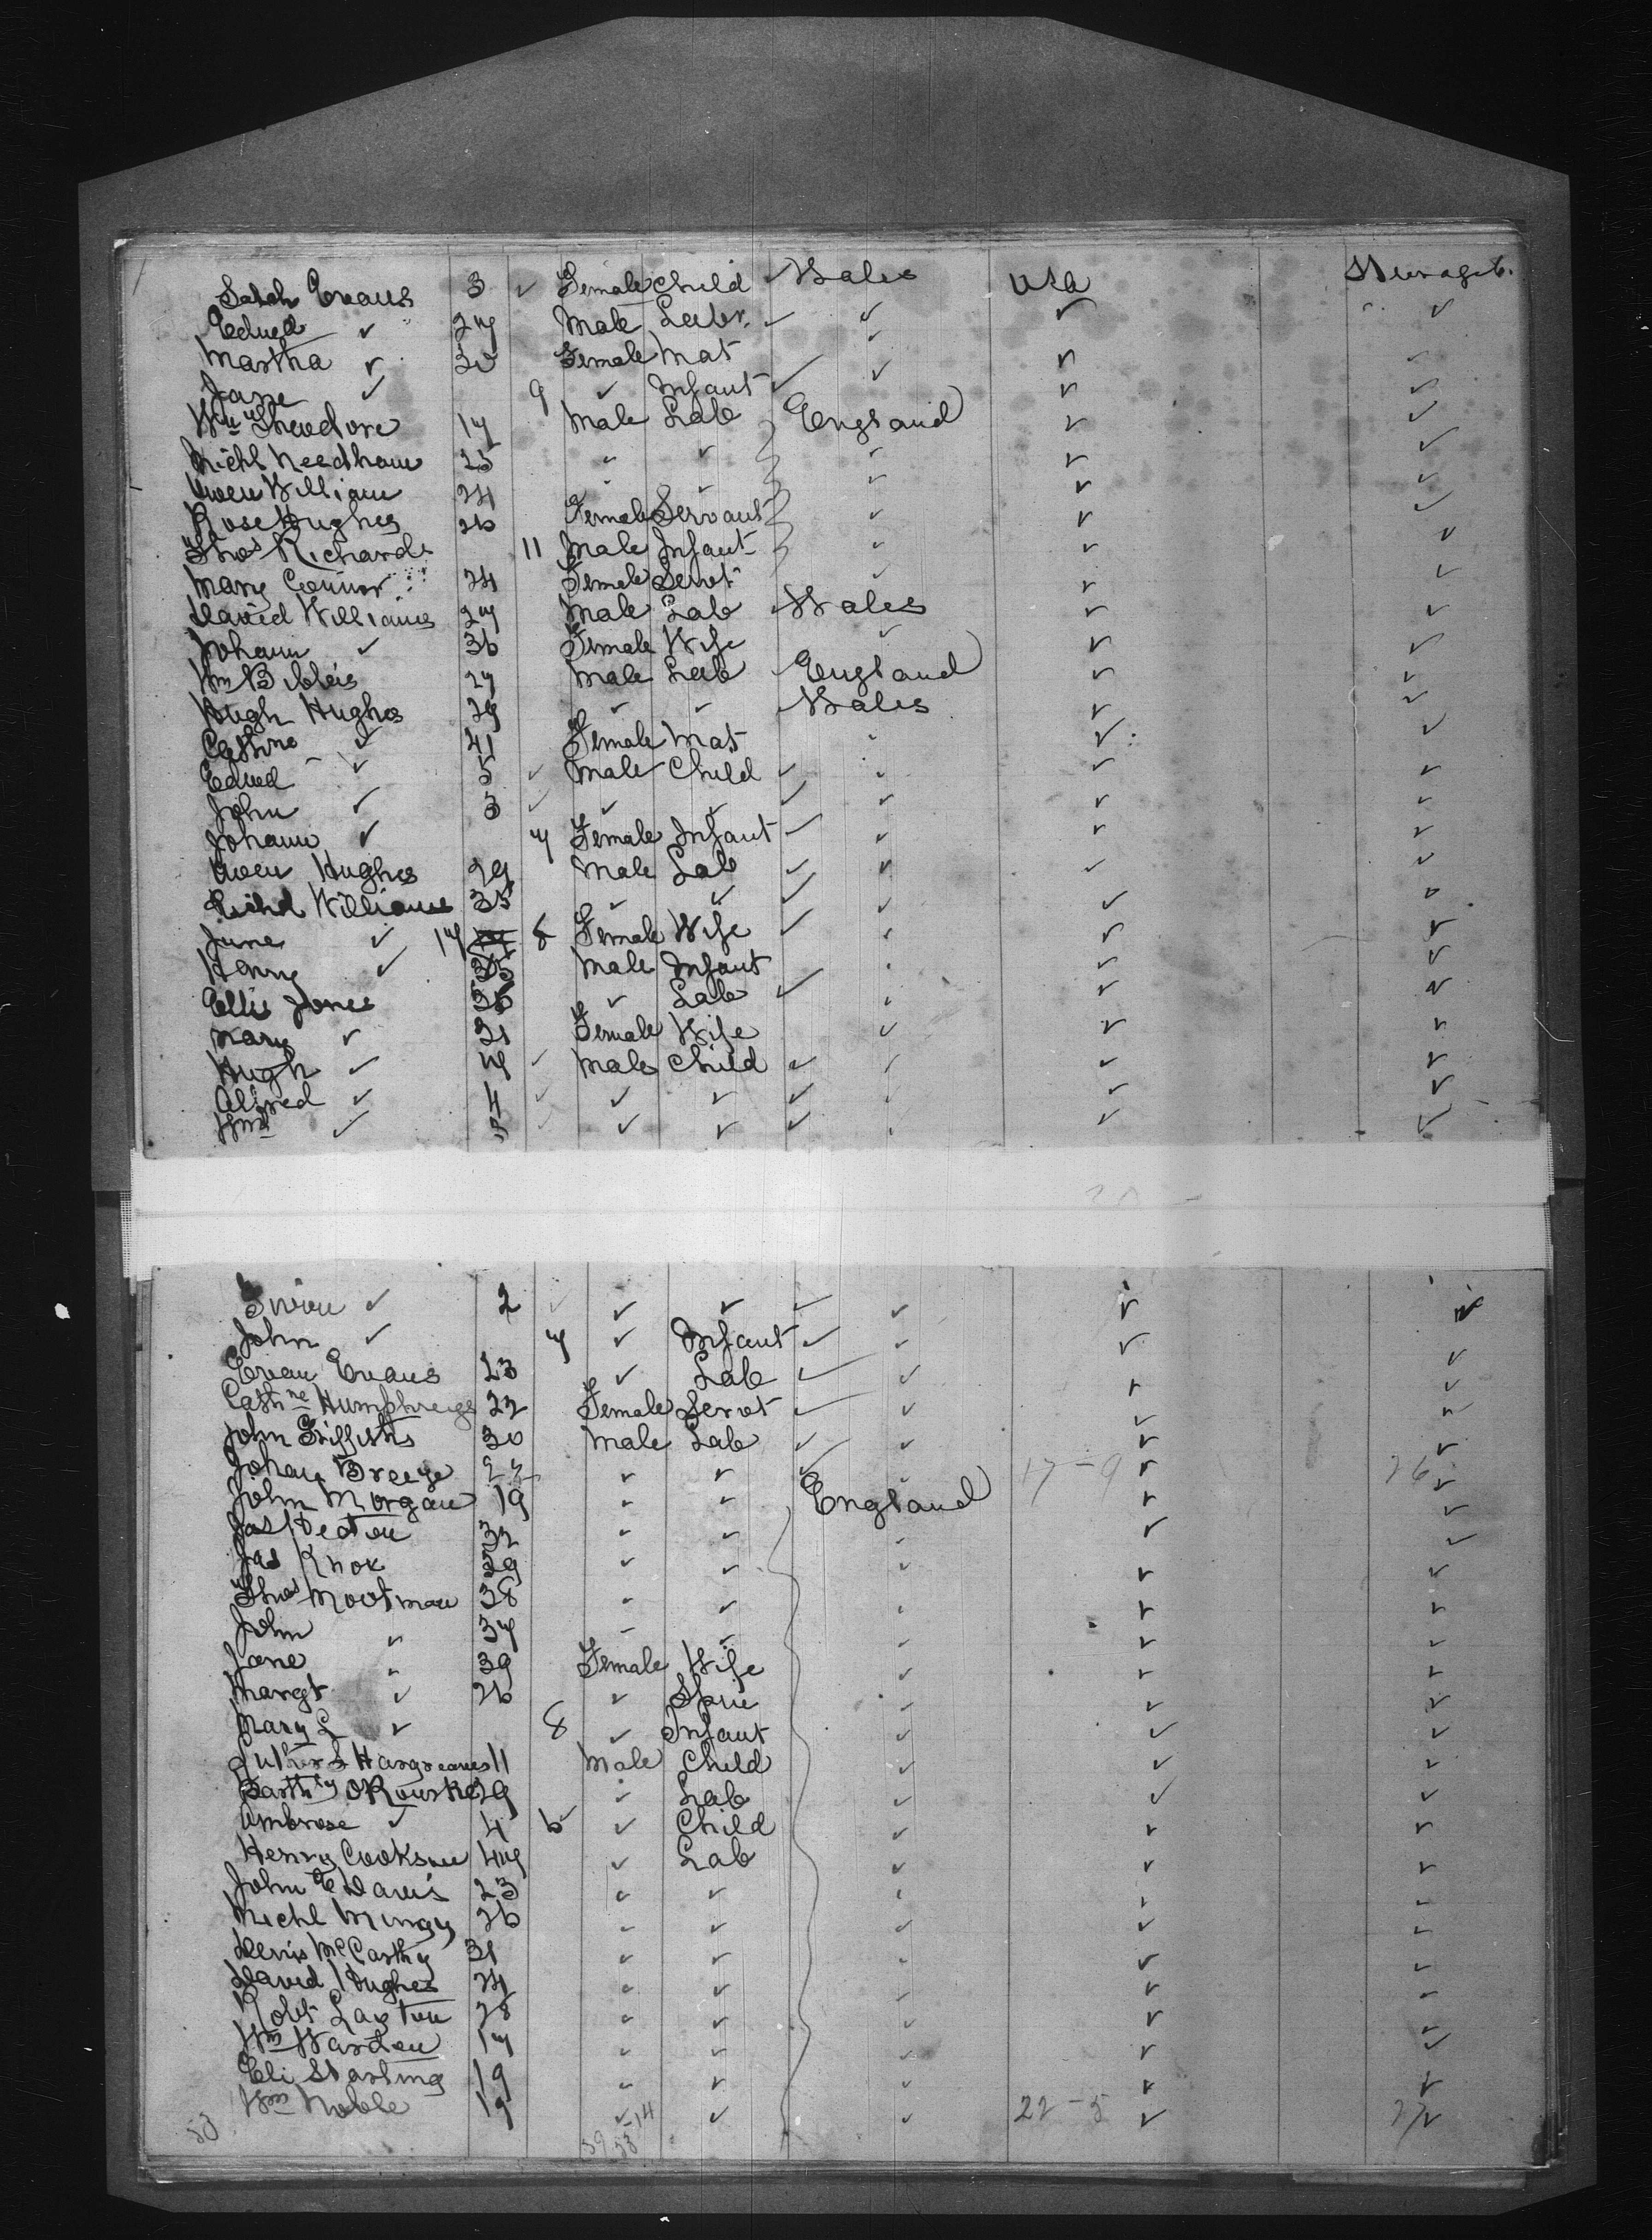 Sarah Evans 3 ✓ Female Child ✓ Wales USA Steerage
Edwd ✓ 27 Male Labr ✓ ✓ ✓ ✓
Martha ✓ 30 Female Mat ✓ ✓ ✓
Jane ✓ 9 ✓ Infant ✓ ✓ ✓ ✓
Wm Theodore 17 Male Lab England ✓ ✓
Michl Needham 25 ✓ ✓ ✓ ✓ ✓
Owen William 24 ✓ ✓ ✓ ✓ ✓
Rose Hughes 26 Female Servant ✓ ✓ ✓
Thos Richards 11 Male Infant ✓ ✓ ✓
Mary Connor 24 Female Servt ✓ ✓ ✓
David Williams 27 Male Lab Wales ✓ ✓
Johann ✓ 36 Female Wife ✓ ✓ ✓
Wm Bibleis 27 Male Lab England ✓ ✓
Hugh Hughes 39 ✓ ✓ Wales ✓ ✓
Cathne ✓ 41 Female Mat ✓ ✓ ✓
Edwd ✓ 5 ✓ Male Child ✓ ✓ ✓ ✓
John ✓ 3 ✓ ✓ ✓ ✓ ✓ ✓ ✓
Johann ✓ 7 Female Infant ✓ ✓ ✓ ✓
Owen Hughes 29 Male Lab ✓ ✓ ✓ ✓
Richd Williams 35 ✓ ✓ ✓ ✓ ✓ ✓
Jane ✓ 17 8 Female Wife ✓ ✓ ✓ ✓
Henry ✓ Male Infant ✓ ✓ ✓
Ellis Jones 36 ✓ Lab ✓ ✓ ✓ ✓
Mary ✓ 31 Female Wife ✓ ✓ ✓
Hugh ✓ 7 ✓ Male Child ✓ ✓ ✓ ✓
Alfred ✓ 4 ✓ ✓ ✓ ✓ ✓ ✓ ✓
Wm ✓ 3 ✓ ✓ ✓ ✓ ✓ ✓ ✓
✓ 2 ✓ ✓ ✓ ✓ ✓ ✓ ✓
John ✓ 7 ✓ Infant ✓ ✓ ✓ ✓
Evan Evans 23 ✓ Lab ✓ ✓ ✓ ✓
Cathne Humphreys 22 Female Servt ✓ ✓ ✓ ✓
John Griffiths 30 Male Lab ✓ ✓ ✓ ✓
Johan Breeze 22 ✓ ✓ ✓ ✓ 17-9 ✓ 26 ✓
John Morgan 19 ✓ ✓ England ✓ ✓
Jas Heaton 32 ✓ ✓ ✓ ✓ ✓
Jas Knox 29 ✓ ✓ ✓ ✓ ✓
Thos Mootman 38 ✓ ✓ ✓ ✓ ✓
John " 37 ✓ ✓ ✓ ✓ ✓
Jane " 39 Female Wife ✓ ✓ ✓
Margt ✓ 26 ✓ Spin ✓ ✓ ✓
Mary L ✓ 8 ✓ Infant ✓ ✓ ✓
Hargreaves 11 Male Child ✓ ✓ ✓
Barthw ORourke 29 ✓ Lab ✓ ✓ ✓
Ambrose ✓ 4 6 ✓ Child ✓ ✓ ✓
Henry Cookson 47 ✓ Lab ✓ ✓ ✓
John E Davis 23 ✓ ✓ ✓ ✓ ✓
Michl 26 ✓ ✓ ✓ ✓ ✓
Denis McCarthy 31 ✓ ✓ ✓ ✓ ✓
David Hughes 24 ✓ ✓ ✓ ✓ ✓
Robt Laxton 28 ✓ ✓ ✓ ✓ ✓
Wm Warden 17 ✓ ✓ ✓ ✓ ✓
Eli Starting 19 ✓ ✓ ✓ ✓ ✓
Wm Noble 19 ✓ ✓ ✓ 22-5 ✓ 27 ✓